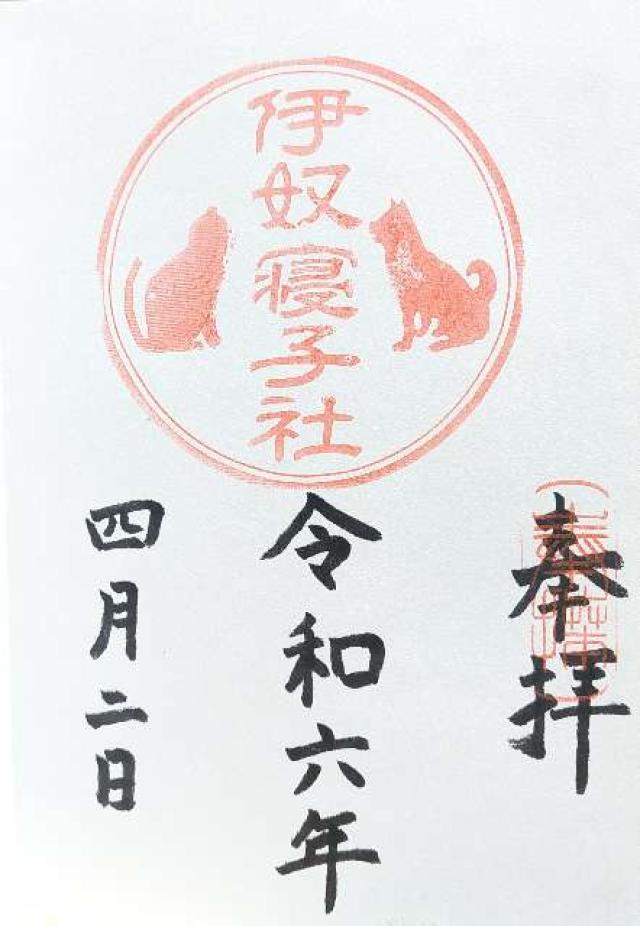 伊奴寝子社
奉拝
令和六年
四月二日